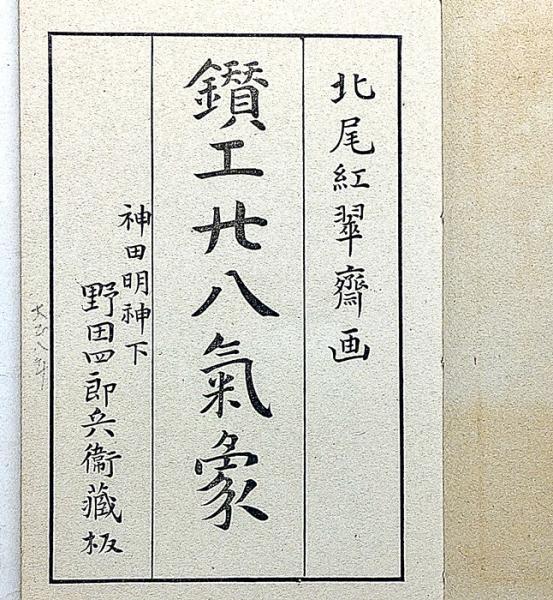 北尾紅翠齋画
鑚工廿八氣象
神田明神下
野田四郎兵衞藏板
大正八年